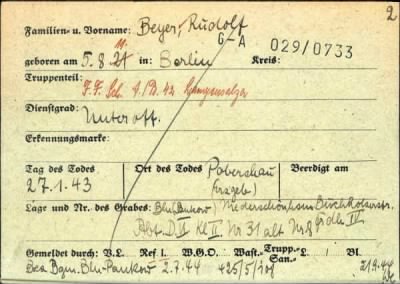 2
Familien- u. Vorname: Beyer, Rudolf
G-A 029/0733
11.
geboren am 5.8.21 in: Berlin Kreis:
Truppenteil:
F.F. Sch. 1/B. 42 Langensalza
Dienstgrad:
Unteroff.
Erkennungsmarke:
Tag des Todes Ort des Todes Pobershau Beerdigt am
27.1.43 (Erzgeb)
Lage und Nr. des Grabes: Bln (Pankow) Niederschönhausen Buchholzerstr.
Abt. D II Kl II Nr 31 alt Nr 8
Gemeldet durch: V.L. Ref I. W.G.O. Wast.- Trupp.- San.- L. Bl.
Bgm. Bln-Pankow 2.7.44 425/5/
21.9.44